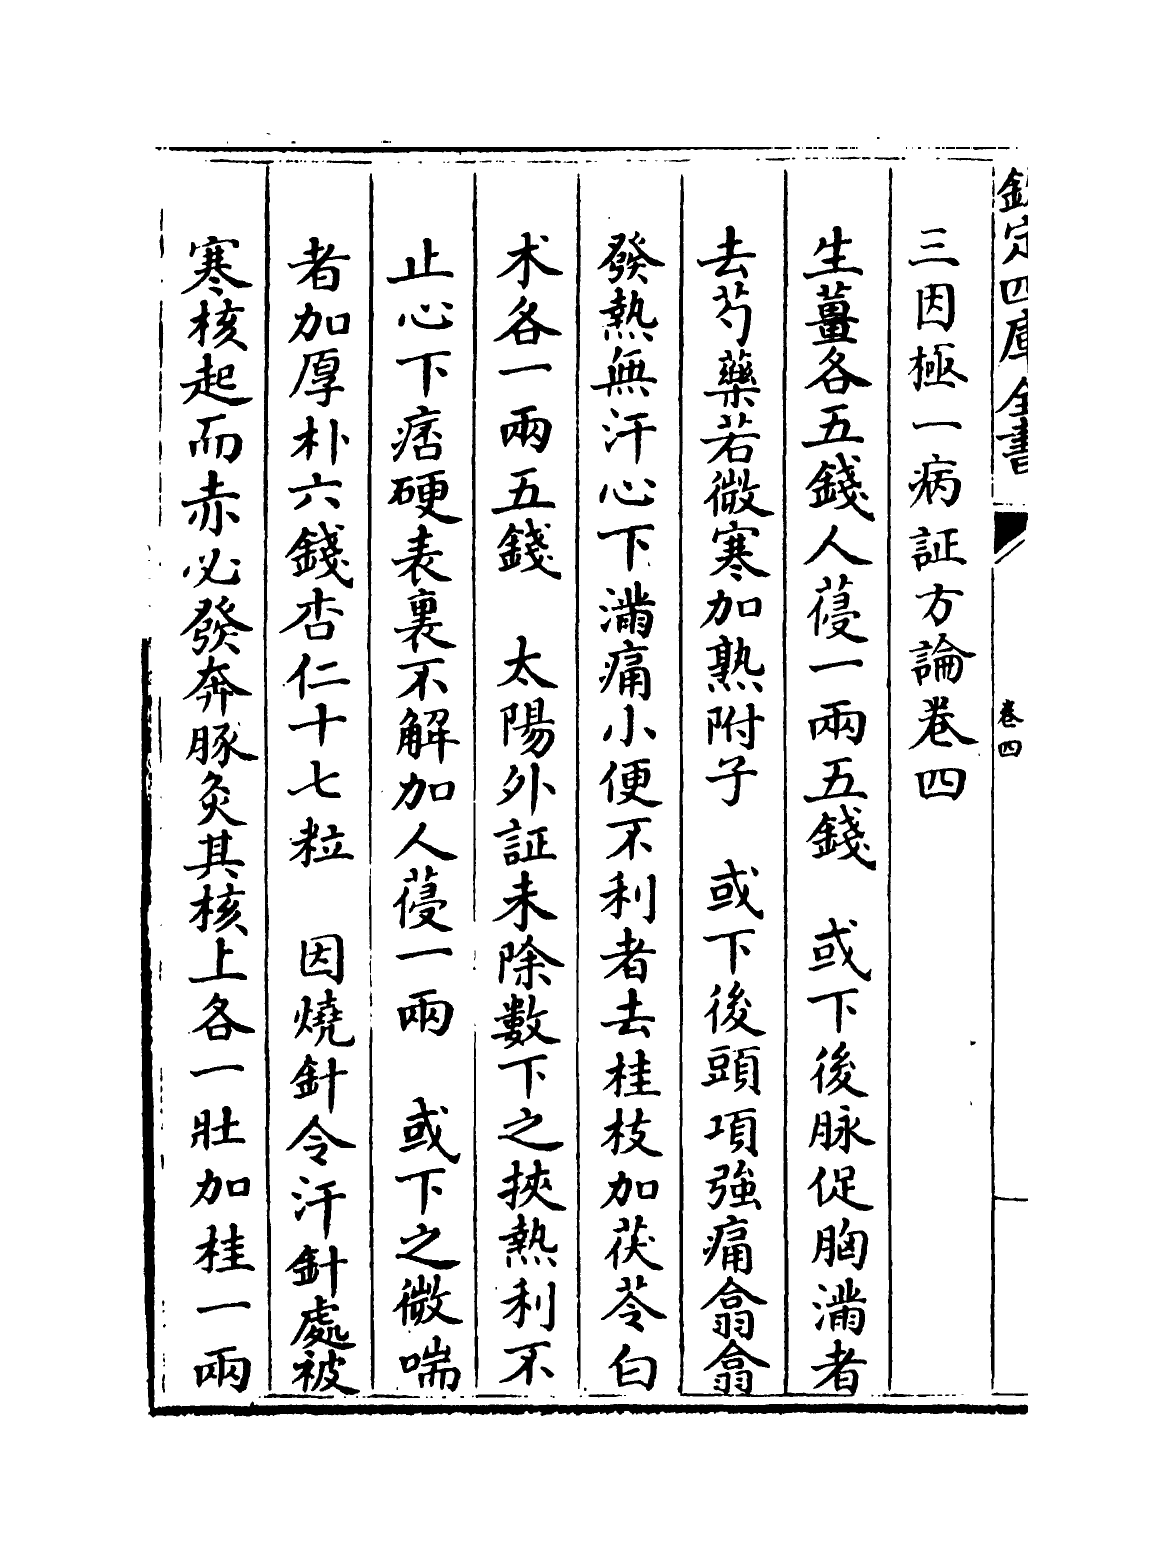 欽定四庫全書
卷四
三因極一病証方論卷四
生薑各五錢人葠一兩五錢　或下後脉促胸滿者
去芍藥若微寒加熟附子　或下後頭項強痛翕翕
發熱無汗心下滿痛小便不利者去桂枝加茯苓白
术各一兩五錢　太陽外証未除數下之挾熱利不
止心下痞硬表裏不解加人葠一兩　或下之微喘
者加厚朴六錢杏仁十七粒　因燒針令汗針處被
寒核起而赤必發奔豚灸其核上各一壯加桂一兩